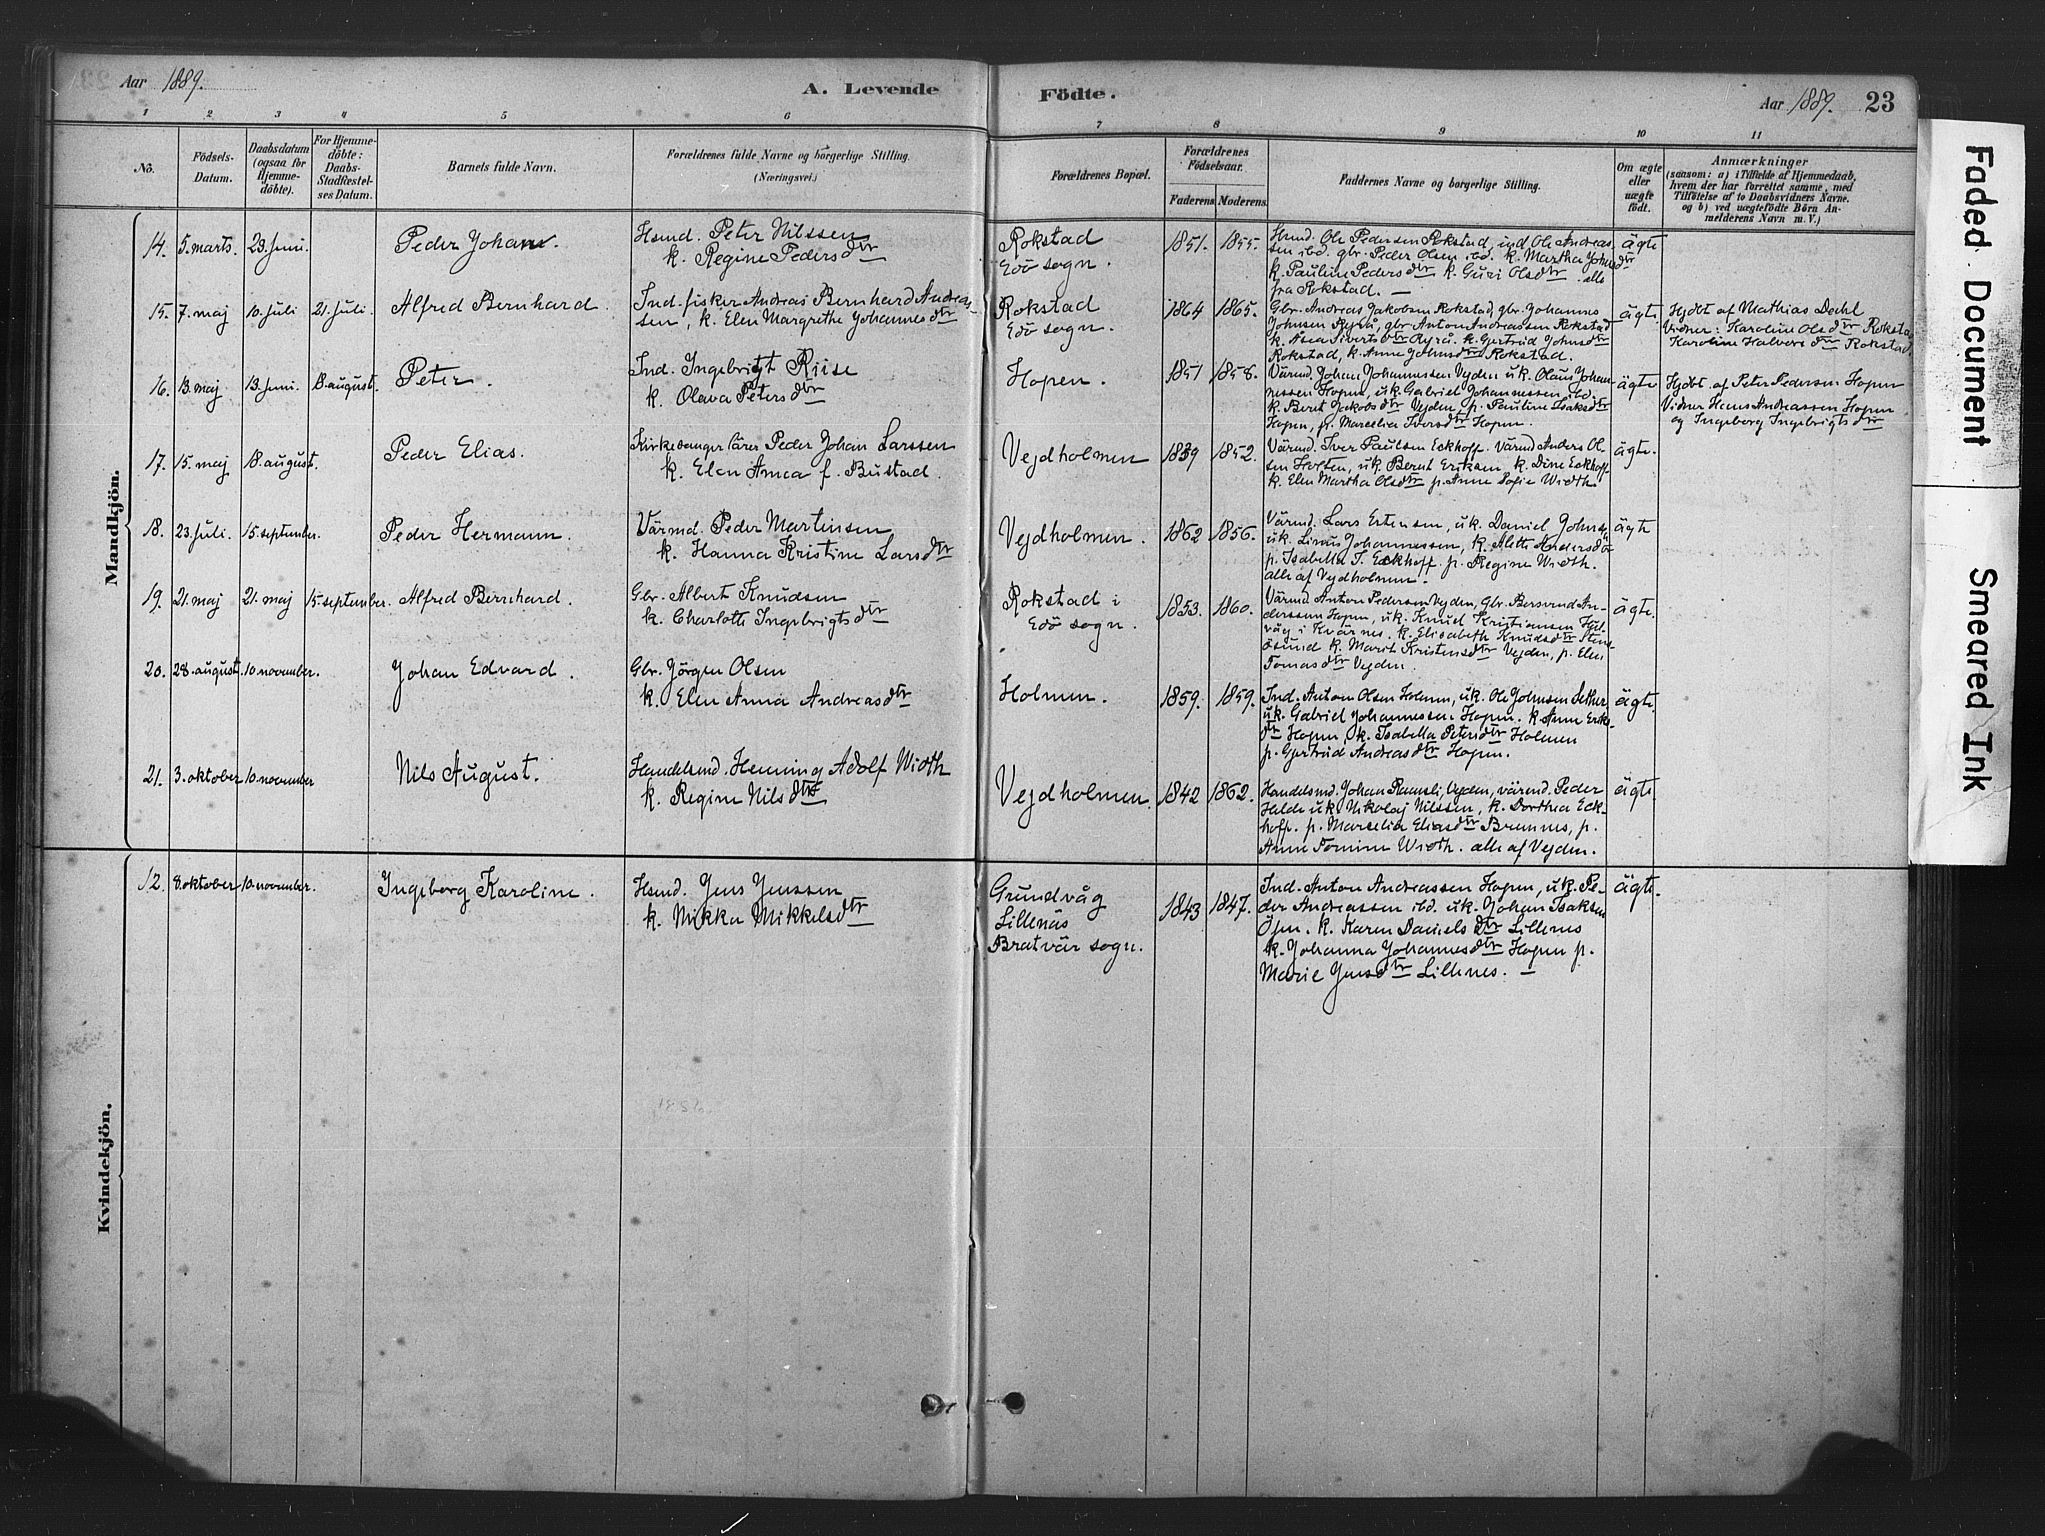 Aar 1889.
A. Levende
Födte.
Aar 1889. 23
1 2 3 4 5 6 7 8 9 10 11
No.
Födsels-
Datum.
Daabsdatum
(ogsaa for
Hjemme-
döbte).
For Hjemme-
döbte:
Daabs-
Stadfæstel-
ses Datum.
Barnets fulde Navn.
Forældrenes fulde Navne og borgerlige Stilling.
(Næringsvei.)
Forældrenes Bopæl.
Forældrenes
Födselsaar.
Faderens. Moderens.
Faddernes Navne og borgerlige Stilling.
Om ægte
eller
uægte
födt.
Anmærkninger
(saasom: a) i Tilfælde af Hjemmedaab,
hvem der har forrettet samme, med
Tilföielse af to Daabsvidners Navne.
og b) ved uægtefödte Börn An-
melderens Navn m. V.)
Mandkjön.
14. 5. marts. 23. Juni. Peder Johan.
Hsmd. Peter Nilssen
k. Regine Pedersdtr
Rokstad
Edö sogn.
1851. 1855.
Hsmd. Ole Pedersen Rokstad, ind Ole Andreas-
sen ibd. gbr. Peder Olsen ibd. k. Martha Johnsdtr
k. Pauline Pedersdtr k. Guri Olsdtr. alle
fra Rokstad.
ägte
15. 7. maj 10. Juli 21. Juli. Alfred Bernhard.
Ind. fisker Andreas Bernhard Andreas-
sen, k. Elen Margrethe Johannesdtr
Rokstad
Edö sogn.
1864 1865.
Gbr. Andreas Jakobsen Rokstad, gbr. Johannes
Johnsen Ryrå, gbr Anton Andreassen Rokstad
k. Åsea Sivertsdtr Ryrå. k. Gertrud Johnsdtr
Rokstad, k. Anne Johnsdtr Rokstad.
ägte
Hjdbt af Mathias Dahl
Vidner: Karoline Olsdtr Rokstad
Karoline Halvorsdtr Rokstad
16. 13. maj 13. Juni. 18. august. Peter.
Ind. Ingebrigt Riise
k. Olava Petersdtr
Hopen.
1851 1858.
Värmd. Johan Johannessen Vejden u.k. Olaus Johan-
nessen Hopen, u.k. Gabriel Johannessen ibd.
k. Berit Jakobsdtr Vejden, p. Pauline Isaksdtr
Hopen, p. Marcelia Iversdtr Hopen.
ägte
Hjdbt. af Peter Pedersen Hopen
Vidner Hans Andreassen Hopen
og Ingeborg Ingebrigtsdtr
17. 15. maj 18. august. Peder Elias.
Kirkesanger lärer Peder Johan Larssen
k. Elen Anna f. Bustad.
Vejdholmen
1839 1852.
Värmd. Iver Paulsen Eckhoff. Värmd Anders Ol-
sen Holten, u.k. Bernt Eriksen, k. Dine Eckhoff
k. Elen Martha Olsdtr p. Anne Sofie Wioth.
ägte.
18. 23. Juli. 15. september. Peder Hermann.
Värmd. Peder Martinsen
k. Hanna Kristine Larsdtr
Vejdholmen.
1862 1856.
Värmd. Lars Ertensen, u.k. Daniel Johnsen
u.k. Linus Johannessen, k. Alette Andersdtr
p. Isabella T. Eckhoff. p. Regine Wioth.
alle af Vejdholmen.
ägte
19. 21. maj 21. maj 15. september. Alfred Bernhard.
Gbr. Albert Knudsen
k. Charlotte Ingebrigtsdtr
Rokstad i
Edö sogn.
1853. 1860.
Värmd Anton Pedersen Vejden, Gbr. Bersvend An-
derssen Hopen, u.k. Knud Kristiansen Hal-
våg i Kvärnes. k. Elisabeth Knudsdtr Sten-
ösund k. Marit Kristensdtr Vejden, p. Elen
Tomasdtr Vejden.
ägte.
20. 28. august. 10. november. Johan Edvard.
Gbr. Jörgen Olsen
k. Elen Anna Andreasdtr
Holmen.
1859. 1859.
Ind. Anton Olsen Holmen, u.k. Ole Johnsen Sether
u.k. Gabriel Johannessen Hopen. k Anne Eriks-
dtr Hopen, k. Isabella Petersdtr Holmen
p. Gjertrud Andreasdtr Hopen.
ägte.
21. 3. oktober 10. november Nils August.
Handelsmd. Henning Adolf Wioth
k. Regine Nilsdtr
Vejdholmen.
1842 1862.
Handelsmd. Johan Ramsli, Vejden, värmd. Peder
Helde u.k. Nikolaj Nilssen, k. Dorthea Eck-
hoff. p. Marcelia Eliasdtr Brunnes, p.
Anne Tomine Wioth. alle af Vejden.
ägte.
Kvindekjön.
12. 8. oktober 10. november. Ingeborg Karoline.
Hsmd. Jens Jenssen
k. Mikka Mikkelsdtr
Grundvåg
Lillenäs
Bratvär sogn.
1843 1847.
Ind. Anton Andreassen Hopen, u.k. Pe-
der Andreassen ibd. u.k. Johan Isaksen
Öjen. k. Karen Danielsdtr Lillenes
k. Johanna Johannesdtr Hopen p.
Marie Jensdtr Lillenes.
ägte.
Faded Document
Smeared Ink